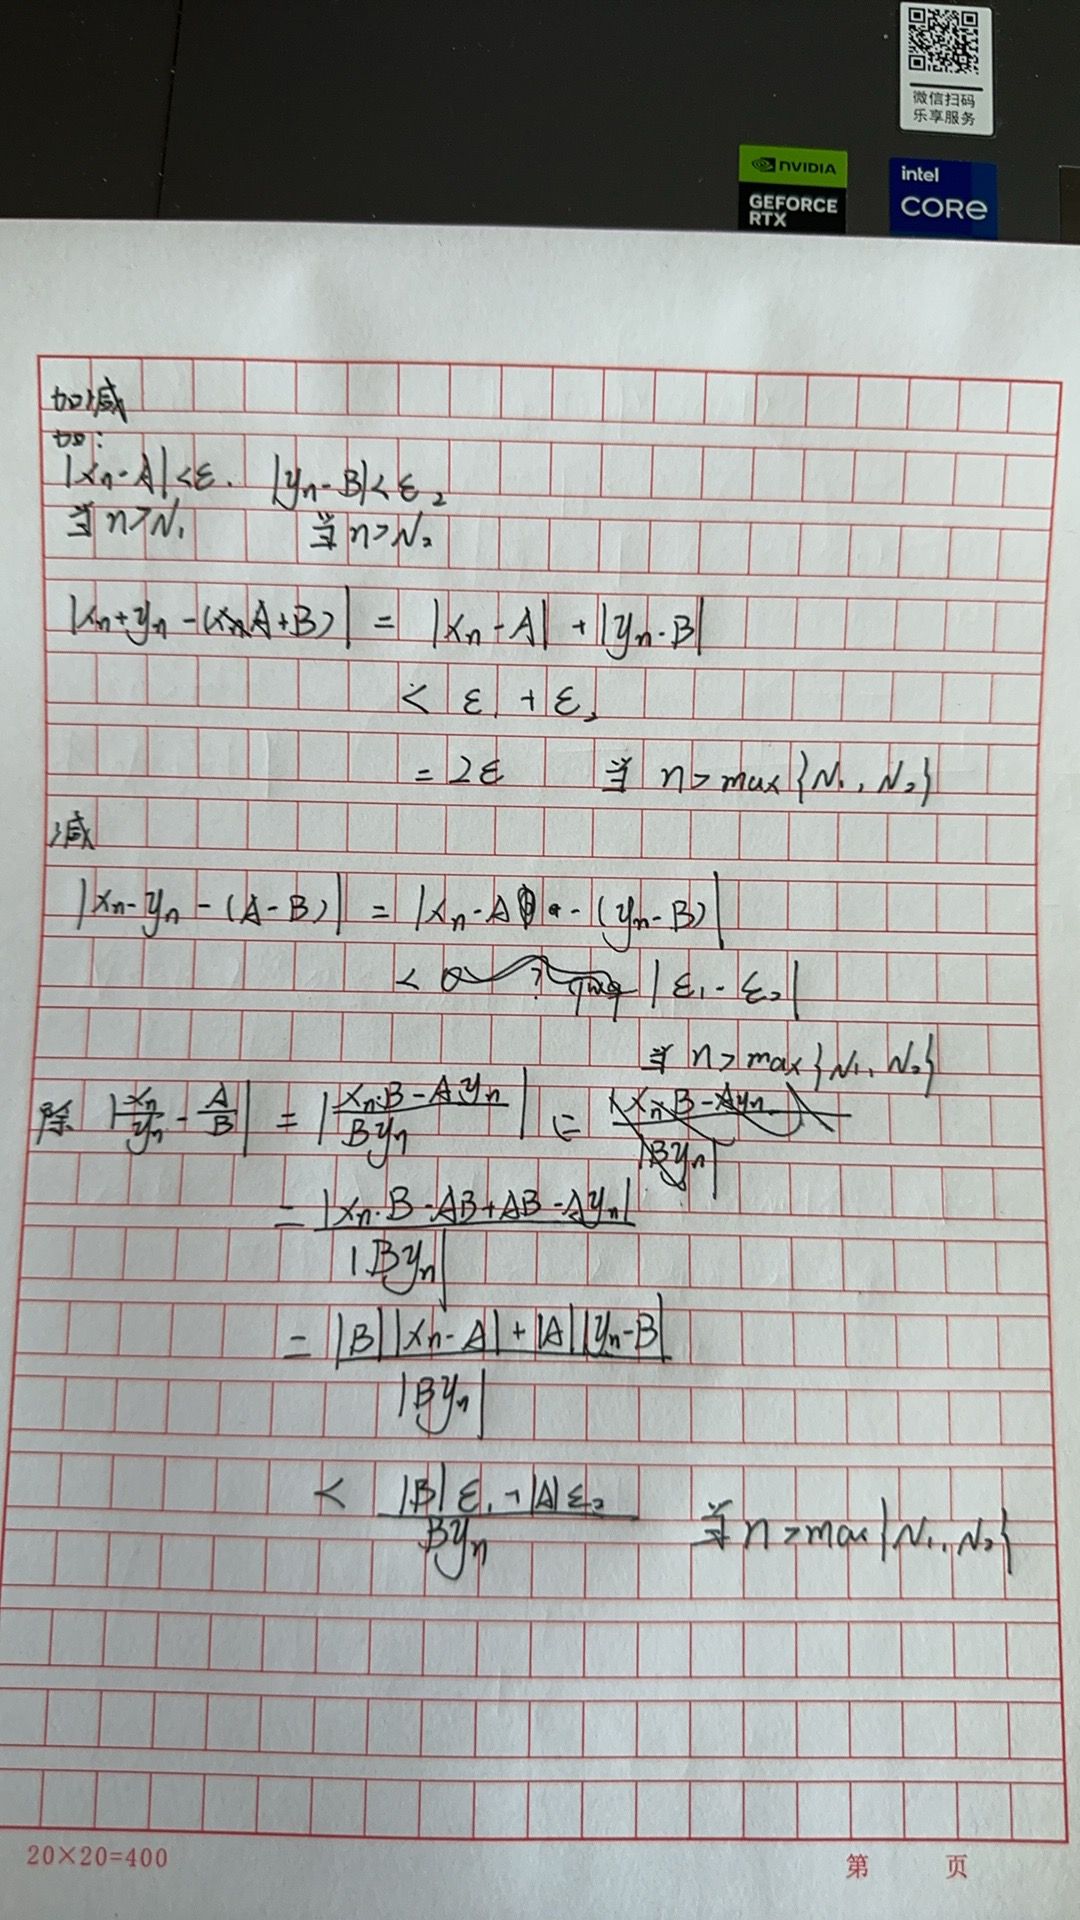 微信扫码
乐享服务
NVIDIA
GEFORCE
RTX
intel
CORE
加减
加:
|xn-A|<ε. |yn-B|<ε₂
当n>N₁ 当n>N₂
|xn+yn-(xnA+B)| = |xn-A| + |yn-B|
< ε₁ + ε₂
= 2ε 当 n>max{N₁, N₂}
减
|xn-yn-(A-B)| = |xn-A - (yn-B)|
< |ε₁-ε₂|
当 n>max{N₁, N₂}
除 |xn/yn - A/B| = |(xn·B-Ayn)/(Byn)| = |xn·B-Ayn|/|Byn|
= |xn·B-AB+AB-Ayn|/|Byn|
= (|B||xn-A|+|A||yn-B|)/|Byn|
< (|B|ε₁+|A|ε₂)/(Byn) 当n>max{N₁, N₂}
20×20=400
第 页